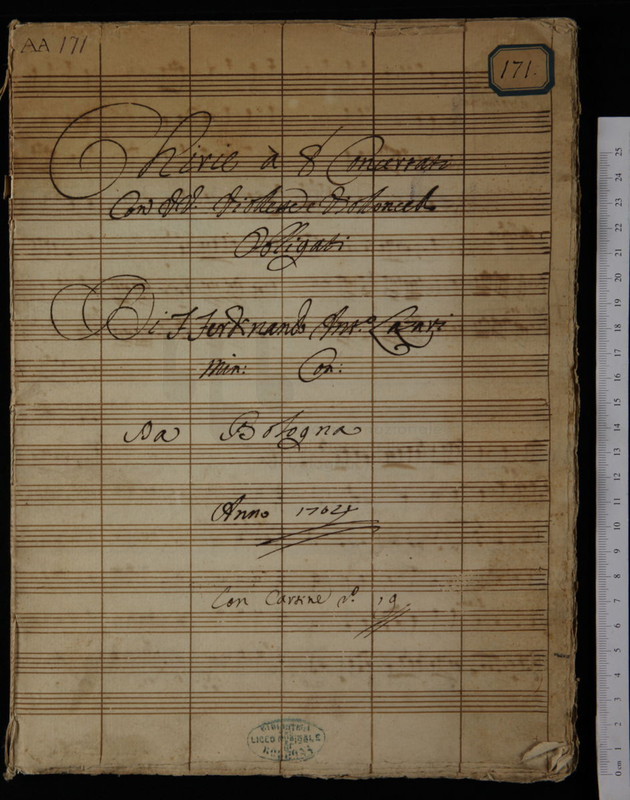 AA 171
171.
Chirie à 8 Concertati
Con VV. Violette e Violoncel.
Obligati
Di F. Ferdinando Ant.º Lazari
Min: Con:
Da Bologna
Anno 1704
Con Cartine n.º 19
BIBLIOTECA
LICEO MUSICALE
DI
BOLOGNA
25
24
23
22
21
20
19
18
17
16
15
14
13
12
11
10
9
8
7
6
5
4
3
2
1
0 cm